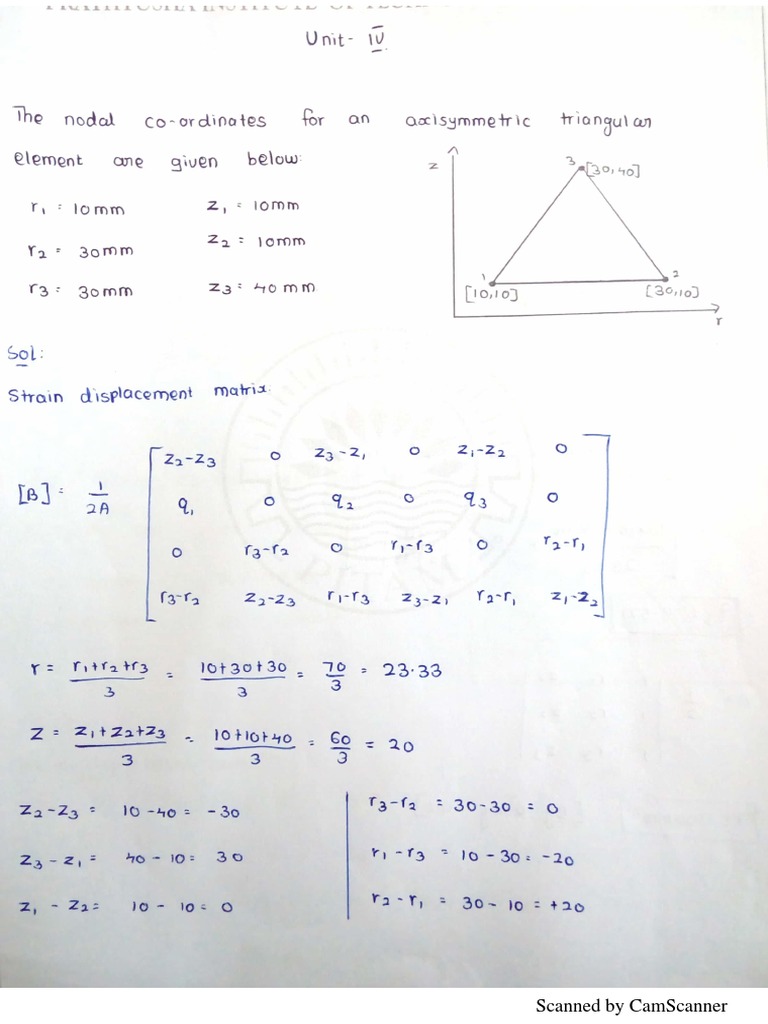 Unit- IV
The nodal co-ordinates for an axisymmetric triangular
element are given below:
r₁ = 10mm z₁ = 10mm
r₂ = 30mm z₂ = 10mm
r₃ = 30mm z₃ = 40mm
z
3 [30,40]
1 2
[10,10] [30,10]
r
Sol:
Strain displacement matrix:
z₂-z₃ 0 z₃-z₁ 0 z₁-z₂ 0
[B] = 1/2A q₁ 0 q₂ 0 q₃ 0
0 r₃-r₂ 0 r₁-r₃ 0 r₂-r₁
r₃-r₂ z₂-z₃ r₁-r₃ z₃-z₁ r₂-r₁ z₁-z₂
r = r₁+r₂+r₃/3 = 10+30+30/3 = 70/3 = 23.33
z = z₁+z₂+z₃/3 = 10+10+40/3 = 60/3 = 20
z₂-z₃ = 10-40 = -30
z₃-z₁ = 40-10 = 30
z₁-z₂ = 10-10 = 0
r₃-r₂ = 30-30 = 0
r₁-r₃ = 10-30 = -20
r₂-r₁ = 30-10 = +20
Scanned by CamScanner